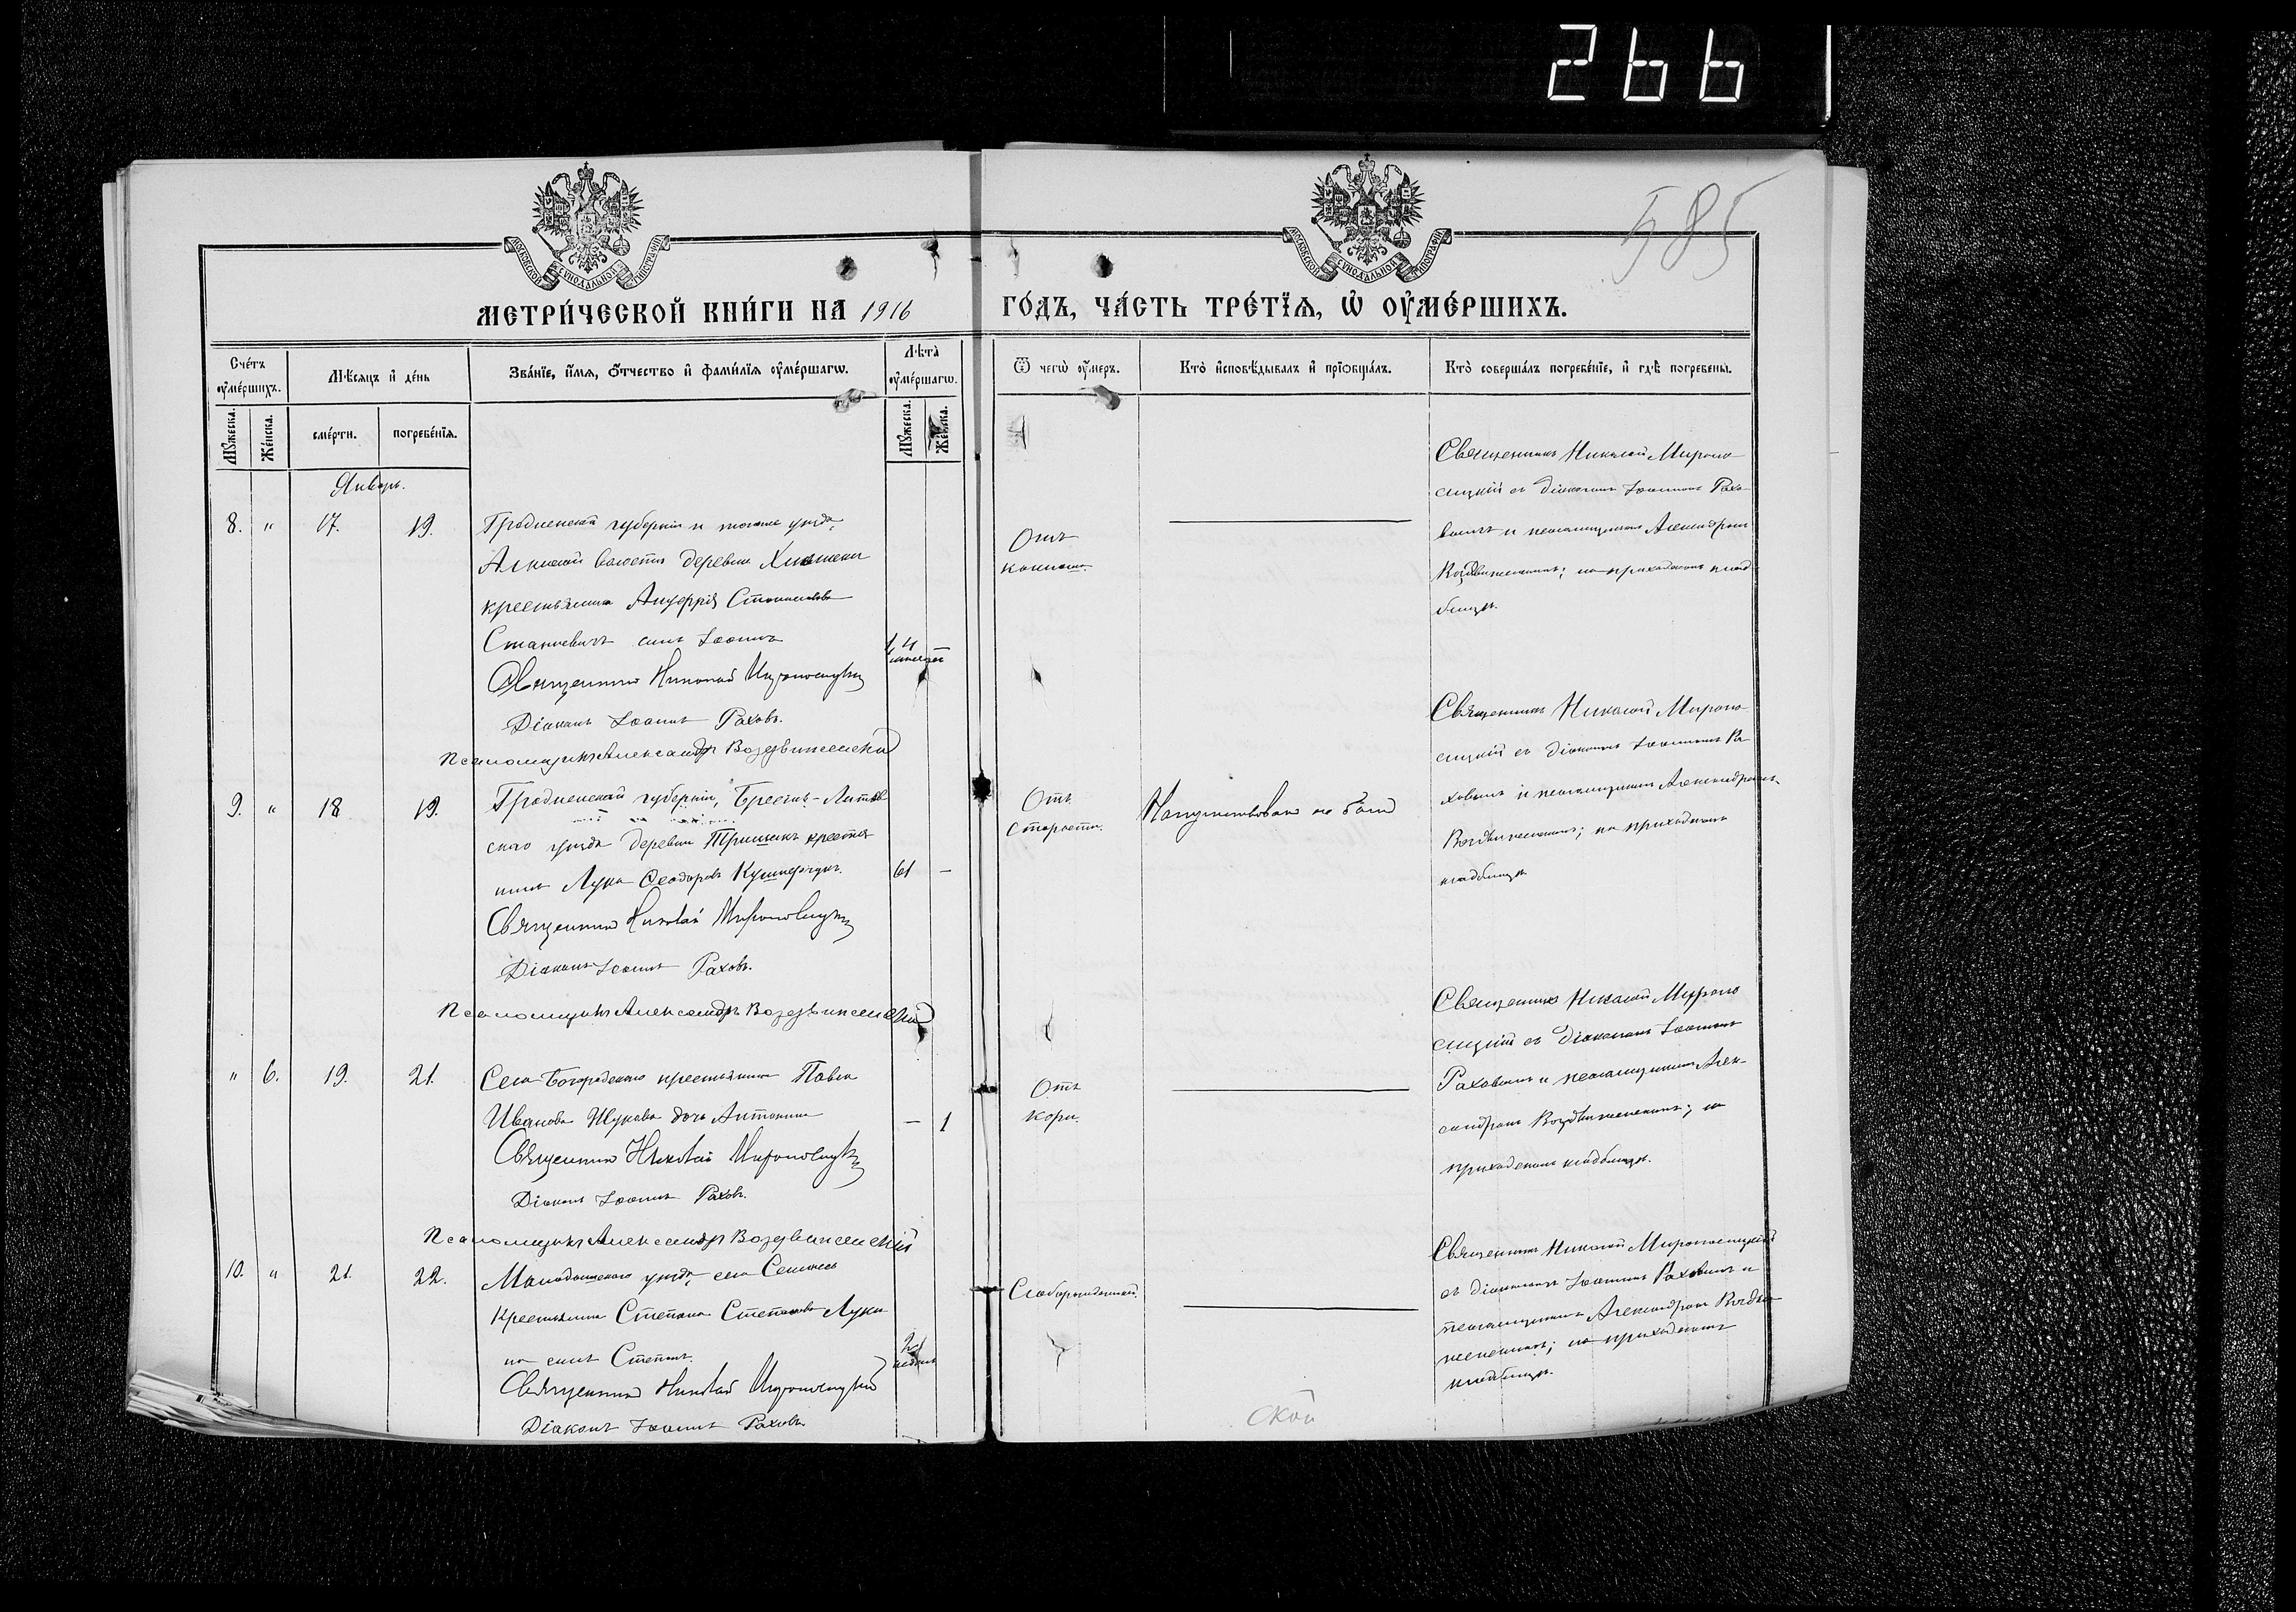 266
585
МОСКОВСКОЙ СУНОДАЛЬНОЙ ТИПОГРАФІИ
МОСКОВСКОЙ СУНОДАЛЬНОЙ ТИПОГРАФІИ
МЕТРИ́ЧЕСКОЙ КНИ́ГИ НА 1916
ГО́ДЪ, ЧА́СТЬ ТРЕ́ТЇѦ, Ѡ҆ ОУ҆МЕ́РШИХЪ.
Сче́тъ оу҆ме́ршихъ.
Мꙋ́жеска.
Же́нска.
Мѣ́сѧцъ и҆ де́нь
сме́рти.
погребе́нїѧ.
Зва́нїе, и҆́мѧ, ѻ҆́тчество и҆ фами́лїѧ оу҆ме́ршагѡ.
Лѣ̑та оу҆ме́ршагѡ.
Мꙋ́жеска.
Же́нска.
Ѿ чегѡ̀ оу҆́меръ.
Кто̀ и҆сповѣ́дывалъ и҆ прїѡбща́лъ.
Кто̀ соверша́лъ погребе́нїе, и҆ гдѣ̀ погребены̀.
Январь.
8. " 17. 19.
Гродненской губерніи и того же уѣзда,
волости деревни
крестьянина Станиславова
Станкевичъ сынъ Іоаннъ
4 мѣсяца —
Священникъ Николай Мироносицкій
Діаконъ Іоаннъ Раховъ.
Псаломщикъ Александръ Воздвиженскій
Отъ
Священникъ Николай Мироно
сицкій съ діакономъ Іоанномъ Рахо-
вымъ и псаломщикомъ Александромъ
Воздвиженскимъ; на приходскомъ клад-
бищѣ.
9. " 18 19.
Гродненской губерніи, Брестъ-Литов
скаго уѣзда деревни Тришинъ крестья
нинъ Лука Ѳеодоровъ Кушнерчукъ.
61 —
Священникъ Николай Мироносицкій
Діаконъ Іоаннъ Раховъ.
Псаломщикъ Александръ Воздвиженскій
Отъ
старости.
Напутствованъ не былъ
Священникъ Николай Мироно
сицкій съ діакономъ Іоанномъ Ра
ховымъ и псаломщикомъ Александромъ
Воздвиженскимъ; на приходскомъ
кладбищѣ
" 6. 19. 21.
Села Богородскаго крестьянина Павла
Иванова Жукова дочь Антонина
— 1
Священникъ Николай Мироносицкій
Діаконъ Іоаннъ Раховъ.
Псаломщикъ Александръ Воздвиженскій
Отъ
кори.
Священникъ Николай Мироно
сицкій съ діакономъ Іоанномъ
Раховымъ и псаломщикомъ Алек-
сандромъ Воздвиженскимъ; на
приходскомъ кладбищѣ.
10. " 21. 22.
уѣзда, села
Крестьянина Степана Степанова Луки
на сынъ Степанъ.
Священникъ Николай Мироносицкій
Діаконъ Іоаннъ Раховъ.
Слаборожденный.
Священникъ Николай Мироносицкій
съ діакономъ Іоанномъ Раховымъ и
псаломщикомъ Александромъ Воздви
женскимъ; на приходскомъ
кладбищѣ.
ской